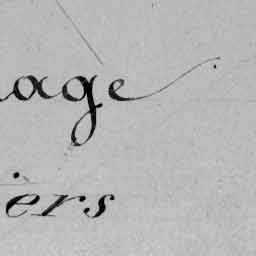 age
iers